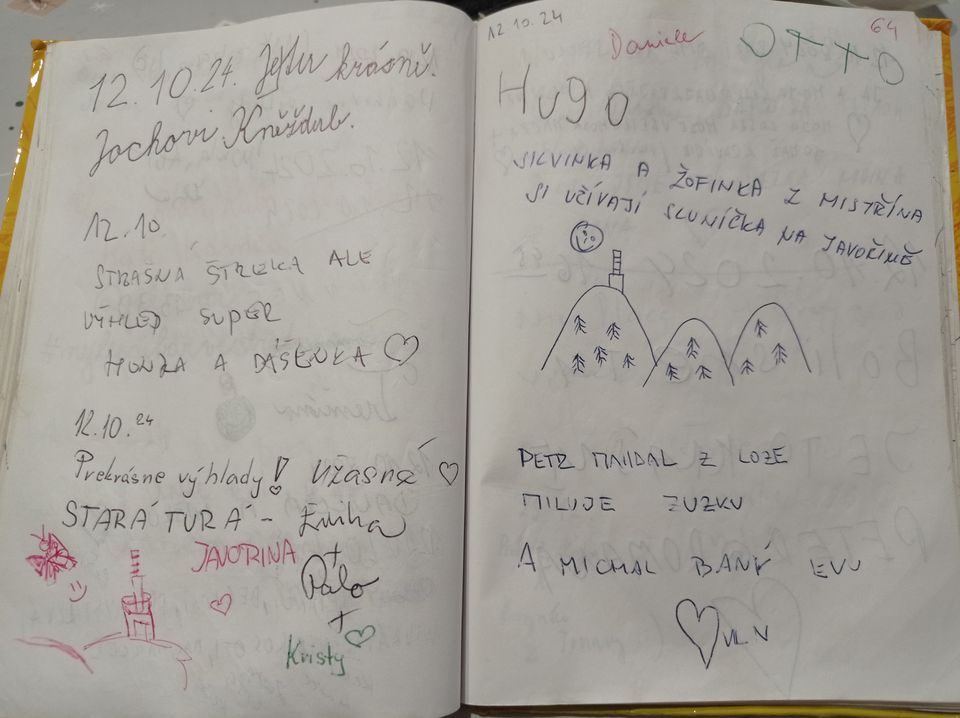 12.10.24. Je tu krásně.
Jochovi Kněždub.
12.10.
STRAŠNÁ ŠTREKA ALE
VÝHLED SUPER
HONZA A DÁŠENKA
12.10.24
Prekrásne výhlady! Úžasné
STARÁ TURÁ - Emiha
+
JAVORINA
Palo
+
Kristy
12.10.24
64
Daniele
OTTO
HUGO
SILVINKA A ŽOFINKA Z MISTŘÍNA
SI UŽÍVAJÍ SLUNÍČKA NA JAVOŘINĚ
PETR MAHDAL Z LOZE
MILUJE ZUZKU
A MICHAL BANÝ EVU